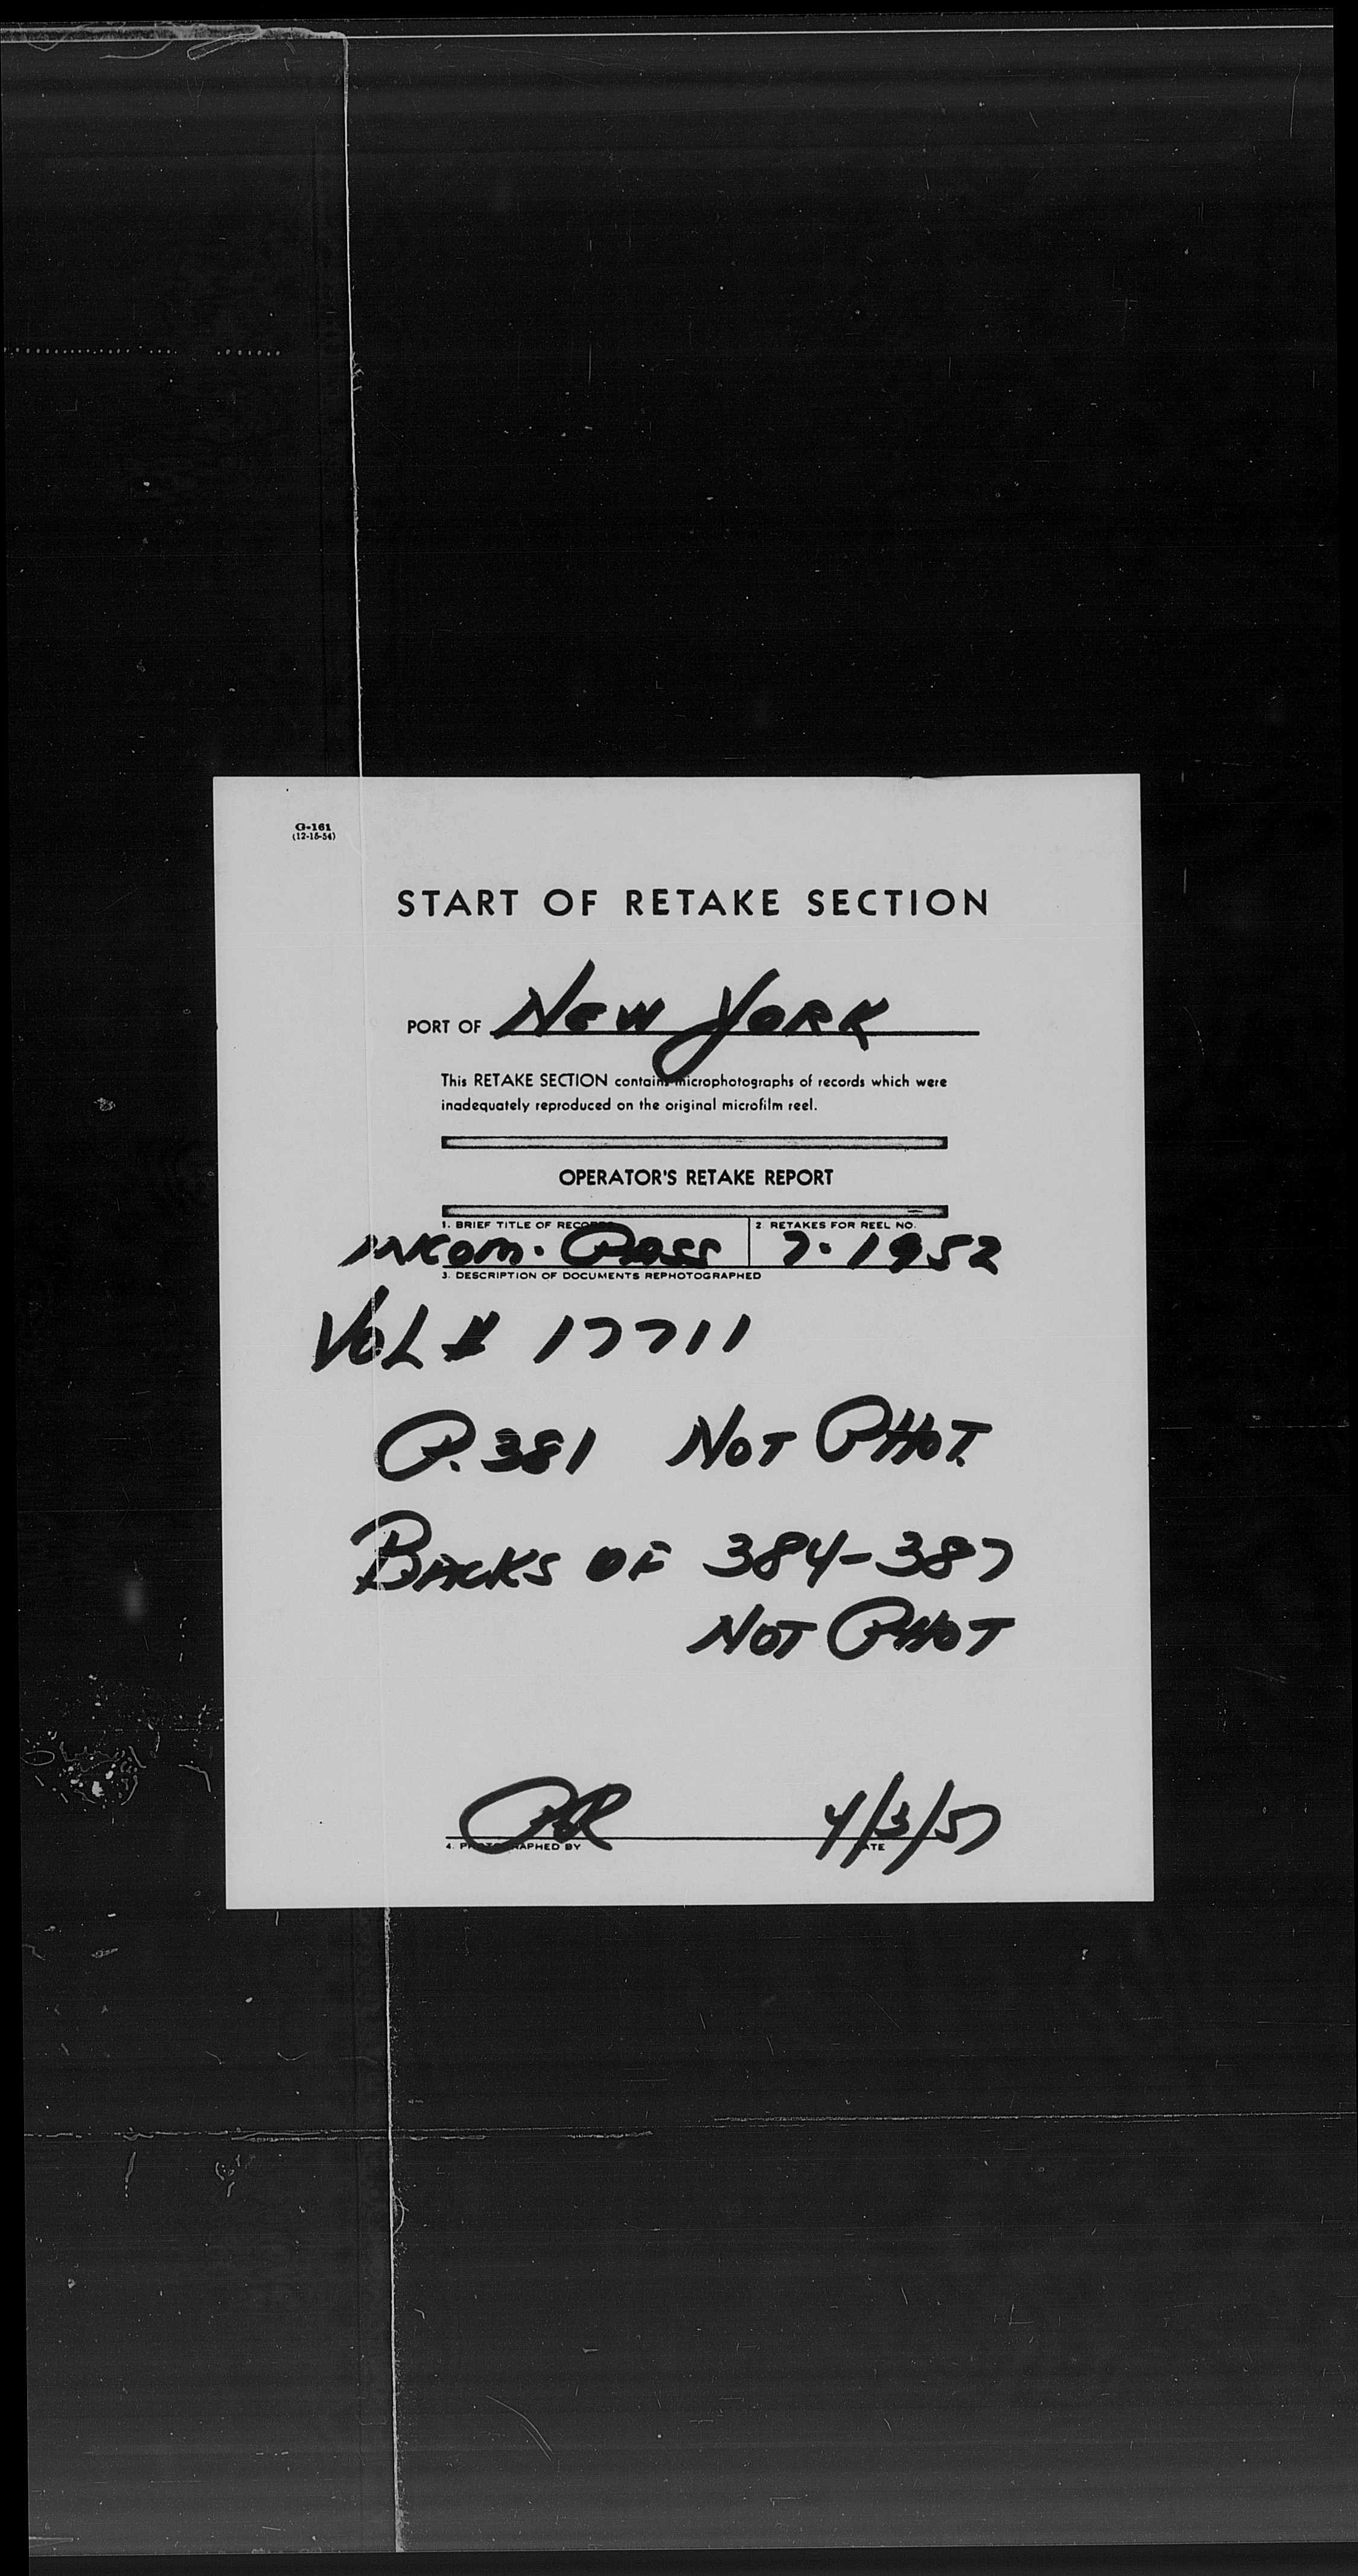 G-161
(12-15-54)
START OF RETAKE SECTION
PORT OF New York
This RETAKE SECTION contains microphotographs of records which were
inadequately reproduced on the original microfilm reel.
OPERATOR'S RETAKE REPORT
1. BRIEF TITLE OF RECORDS 2. RETAKES FOR REEL NO.
INCOM. PASS 7-1952
3. DESCRIPTION OF DOCUMENTS REPHOTOGRAPHED
VOL # 17711
P. 381 NOT PHOT.
BACKS OF 384-387
NOT PHOT
4/3/57
4. PHOTOGRAPHED BY DATE